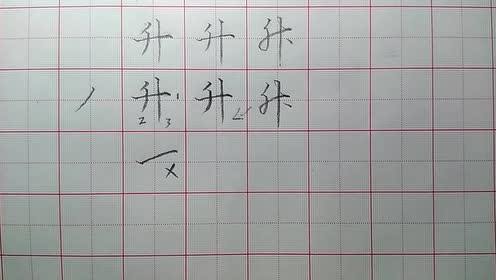 升 升 升
丿 升 1 升 升
2 3
一 x